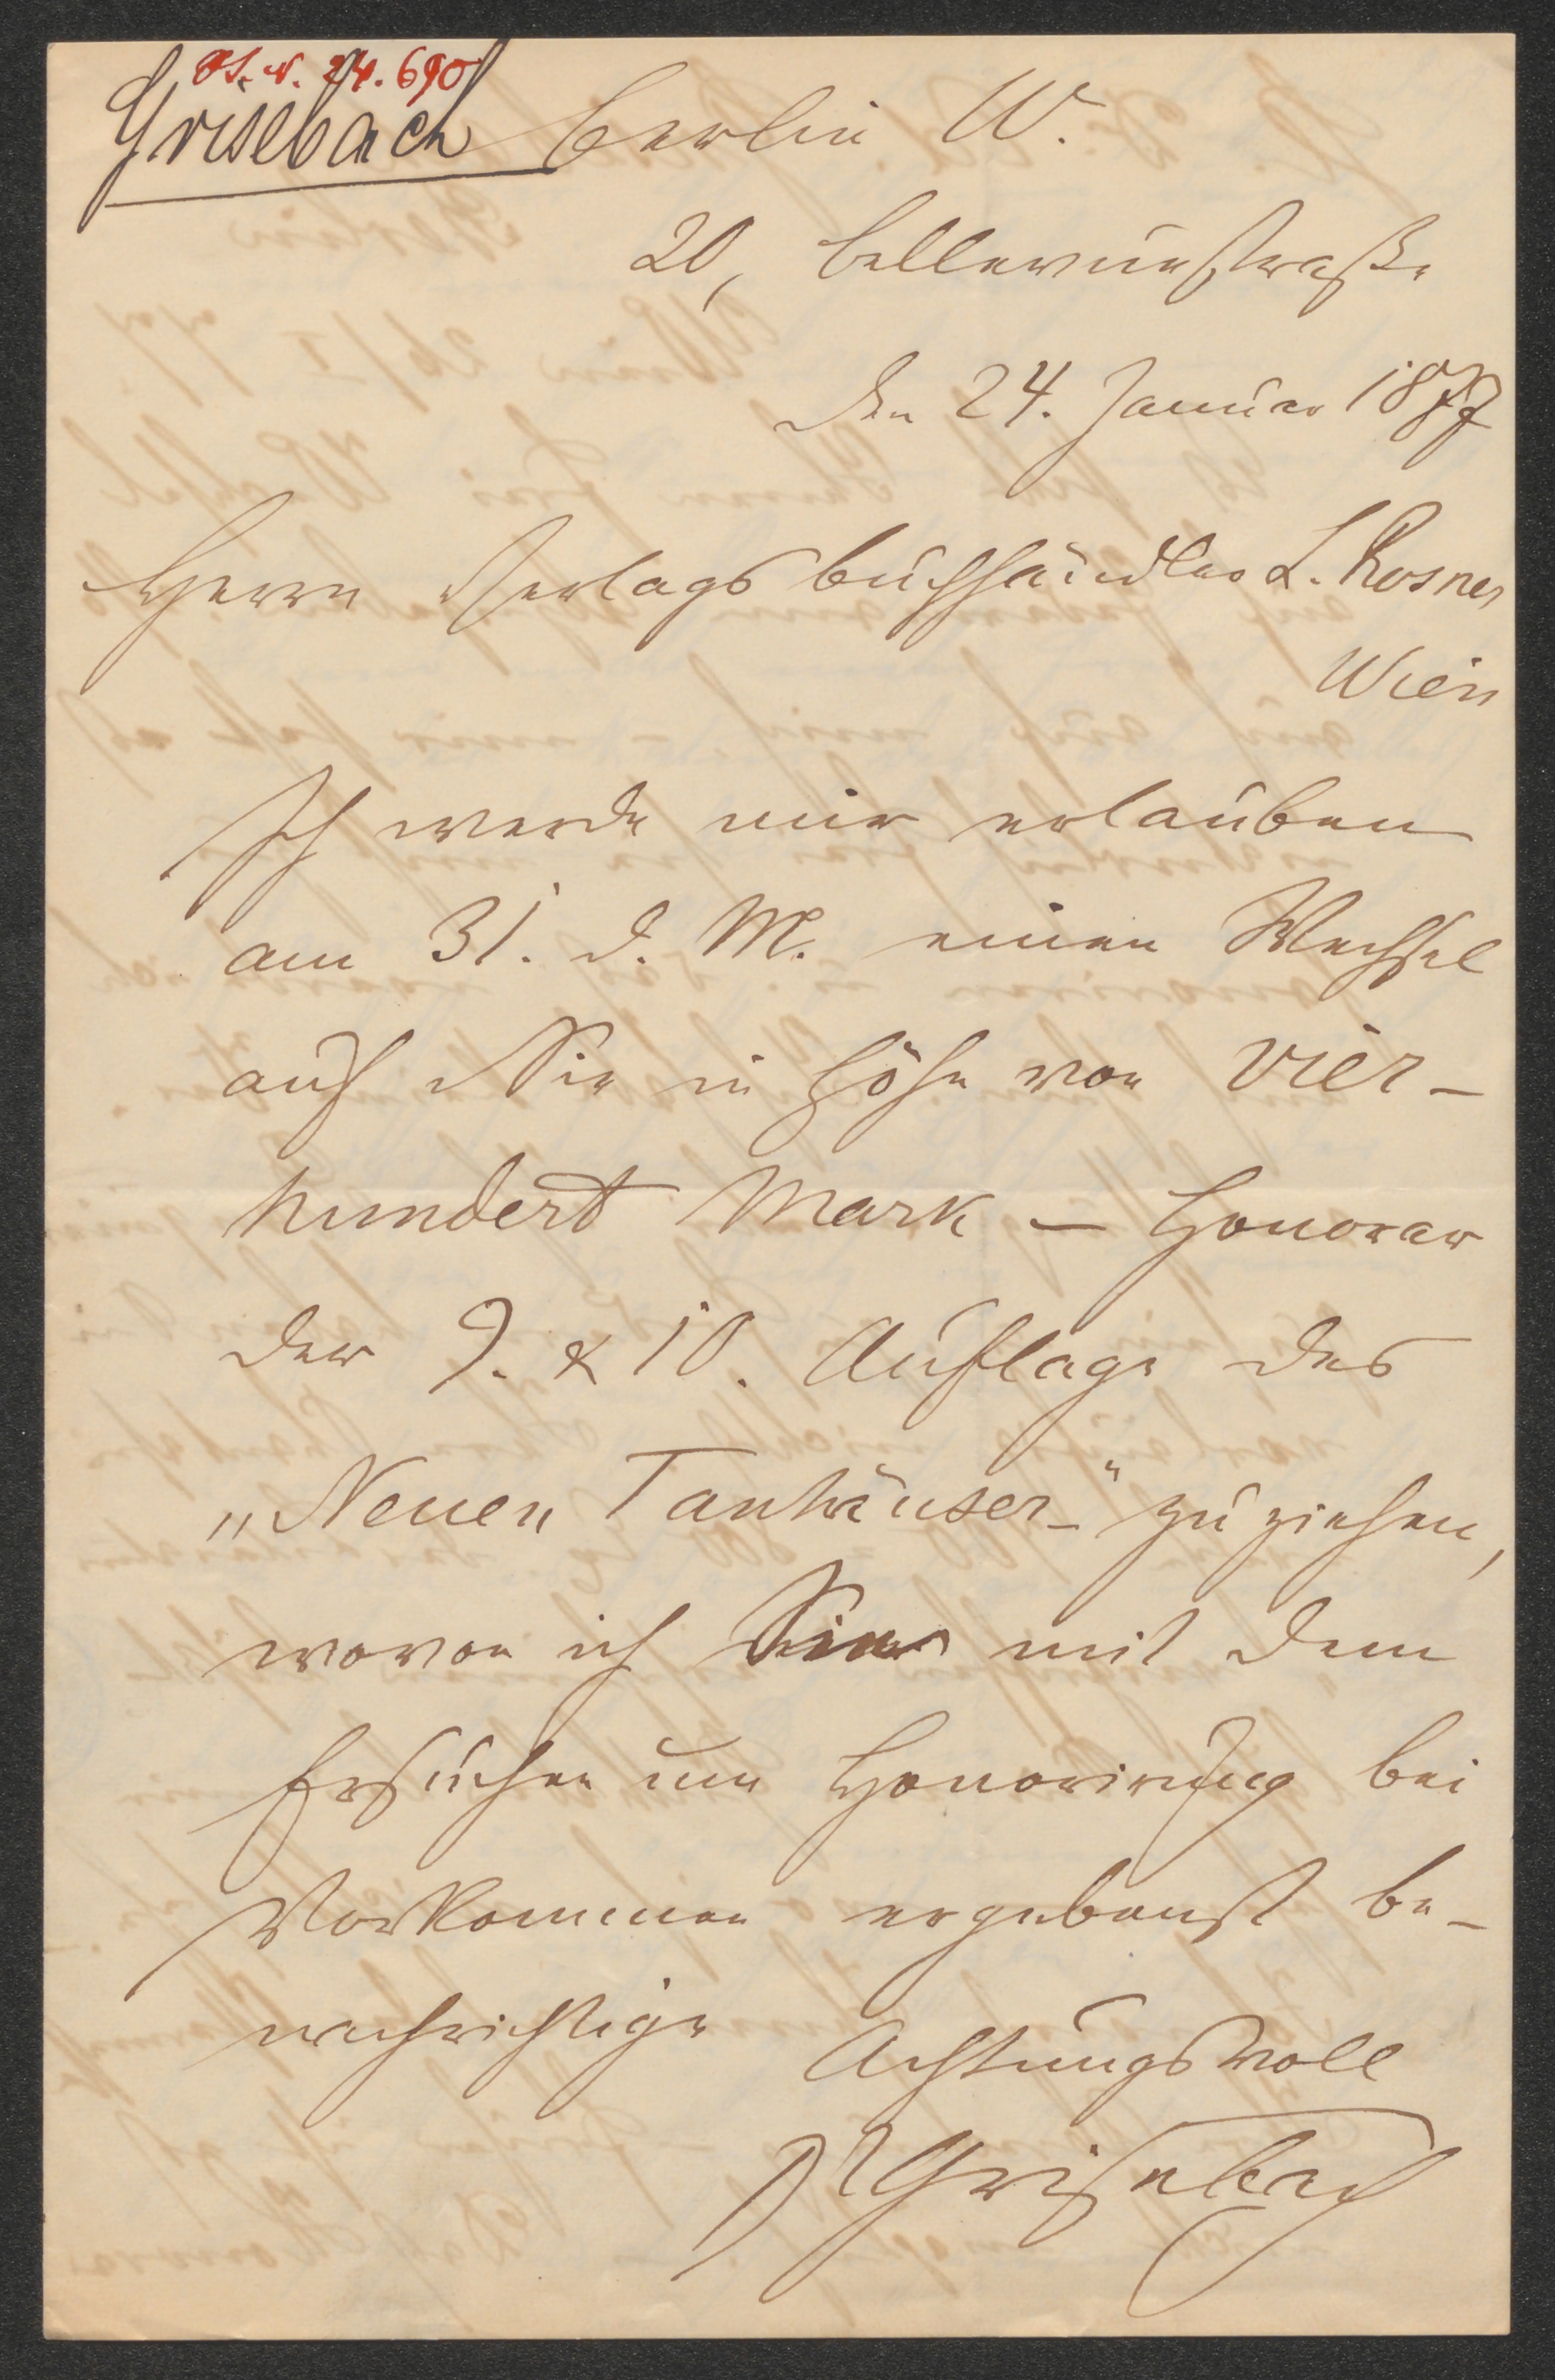 I.N. 24.690
Grisebach
Berlin W.
20, Bellevuestraße
den 24. Januar 1877
Herrn Verlagsbuchhändler L. Rosner
Wien
Ich werde mir erlauben
am 31. d. M. einen Wechsel
auf Sie in Höhe von vier-
hundert Mark – Honorar
der 9. & 10. Auflage des
„Neuen Tanhäuser" zu ziehen,
wovon ich Sie mit dem
Ersuchen um Honorirung bei
Vorkommen ergebenst be-
nachrichtige
Achtungsvoll
Dr Grisebach